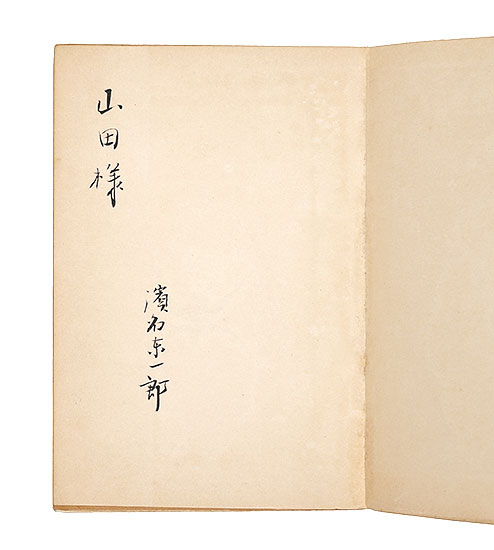 山田様
濱名東一郎